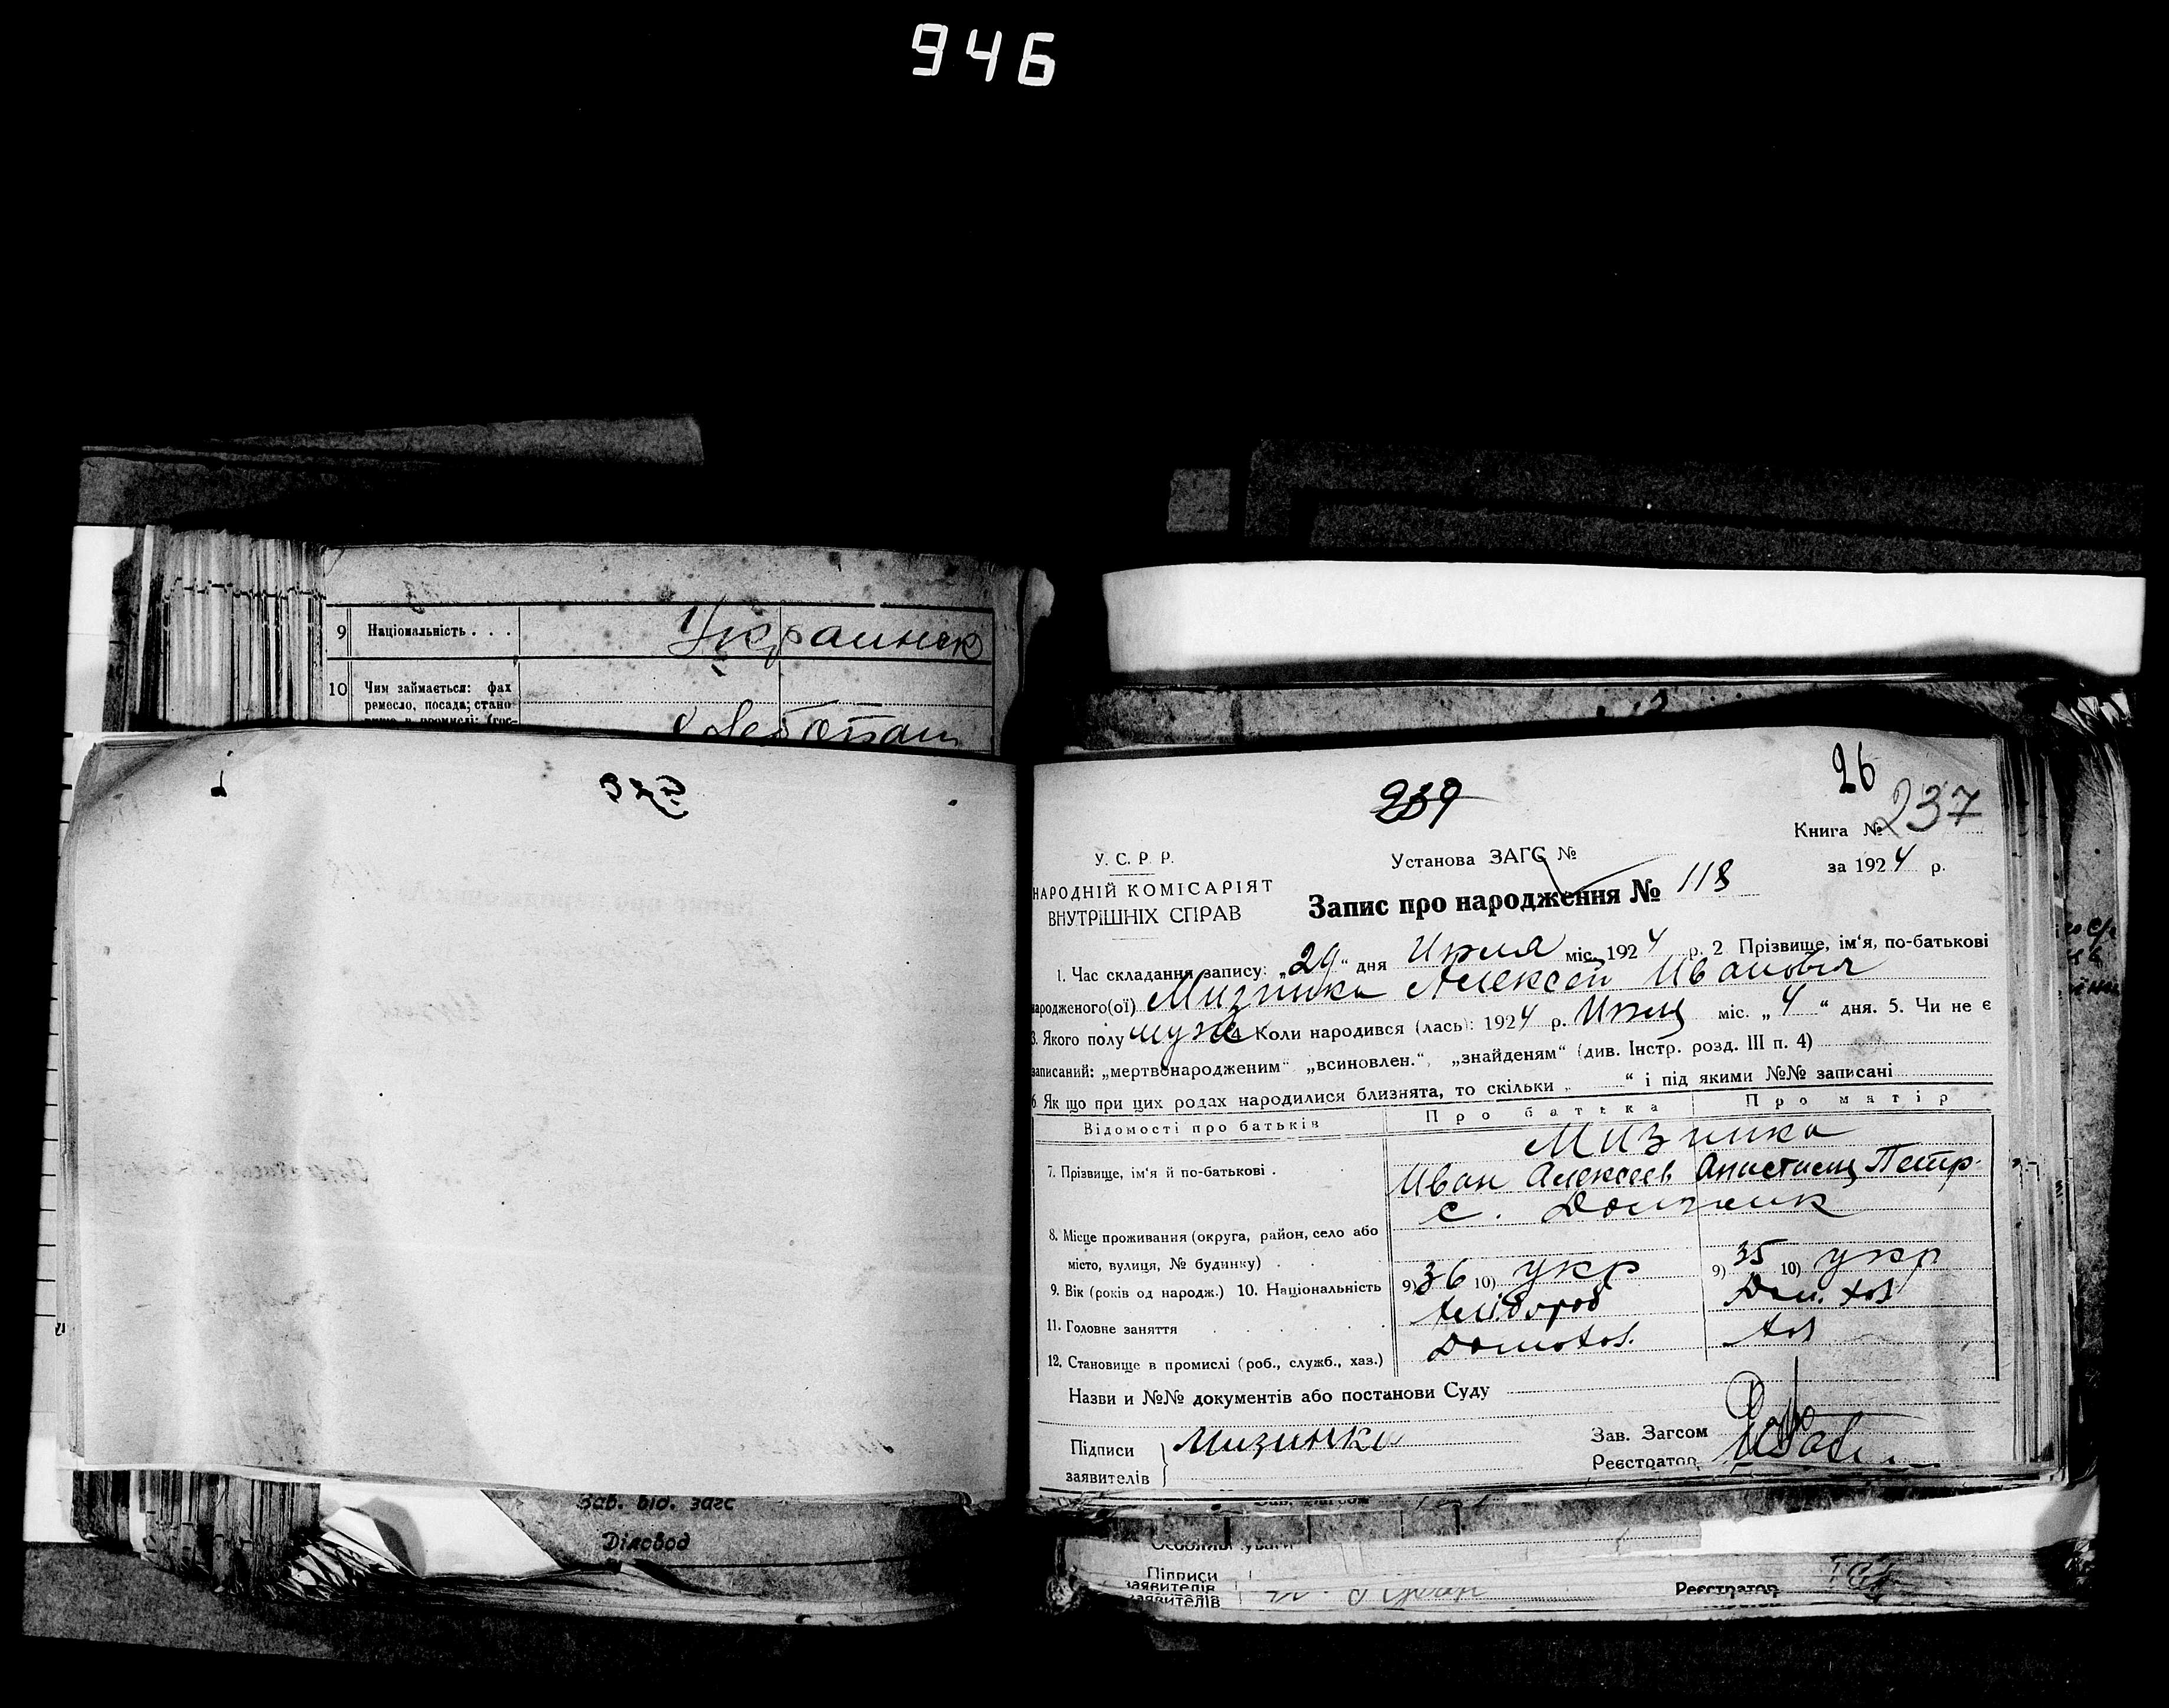 946
9 Національність . . . Украинск
10 Чим займається: фах
ремесло, посада; стано
Хлебопаш
Зав. від. загс
Діловод
26
239
Книга № 237
У. С. Р. Р.
Установа ЗАГС №
за 1924 р.
НАРОДНІЙ КОМІСАРІЯТ
ВНУТРІШНІХ СПРАВ
Запис про народження № 118
1. Час складання запису: „29“ дня Июля міс. 1924 р. 2 Прізвище, ім'я, по-батькові
народженого(ої) Мизинка Алексей Иванович
3. Якого полу муж 4. Коли народився (лась): 1924 р. Июля міс. „4“ дня. 5. Чи не є
записаний: „мертвонародженим“ „всиновлен.“, „знайденям“ (див. Інстр. розд. III п. 4)
6. Як що при цих родах народилися близнята, то скільки „ “ і під якими №№ записані
Відомості про батьків Про батька Про матір
Мизинка
7. Прізвище, ім'я й по-батькові . Иван Алексеев Анастасия Петр.
с.
8. Місце проживання (округа, район, село або
місто, вулиця, № будинку) .
9. Вік (років од народж.) 10. Національність 9) 36 10) укр 9) 35 10) укр
11. Головне заняття Дом. хоз
12. Становище в промислі (роб., служб., хаз.) Домохоз. хоз
Назви и №№ документів або постанови Суду
Підписи
заявителів
Мизинка
Зав. Загсом
Реєстратор
Особливі уваги
Підписи
заявителів
заявителів
Реєстратор